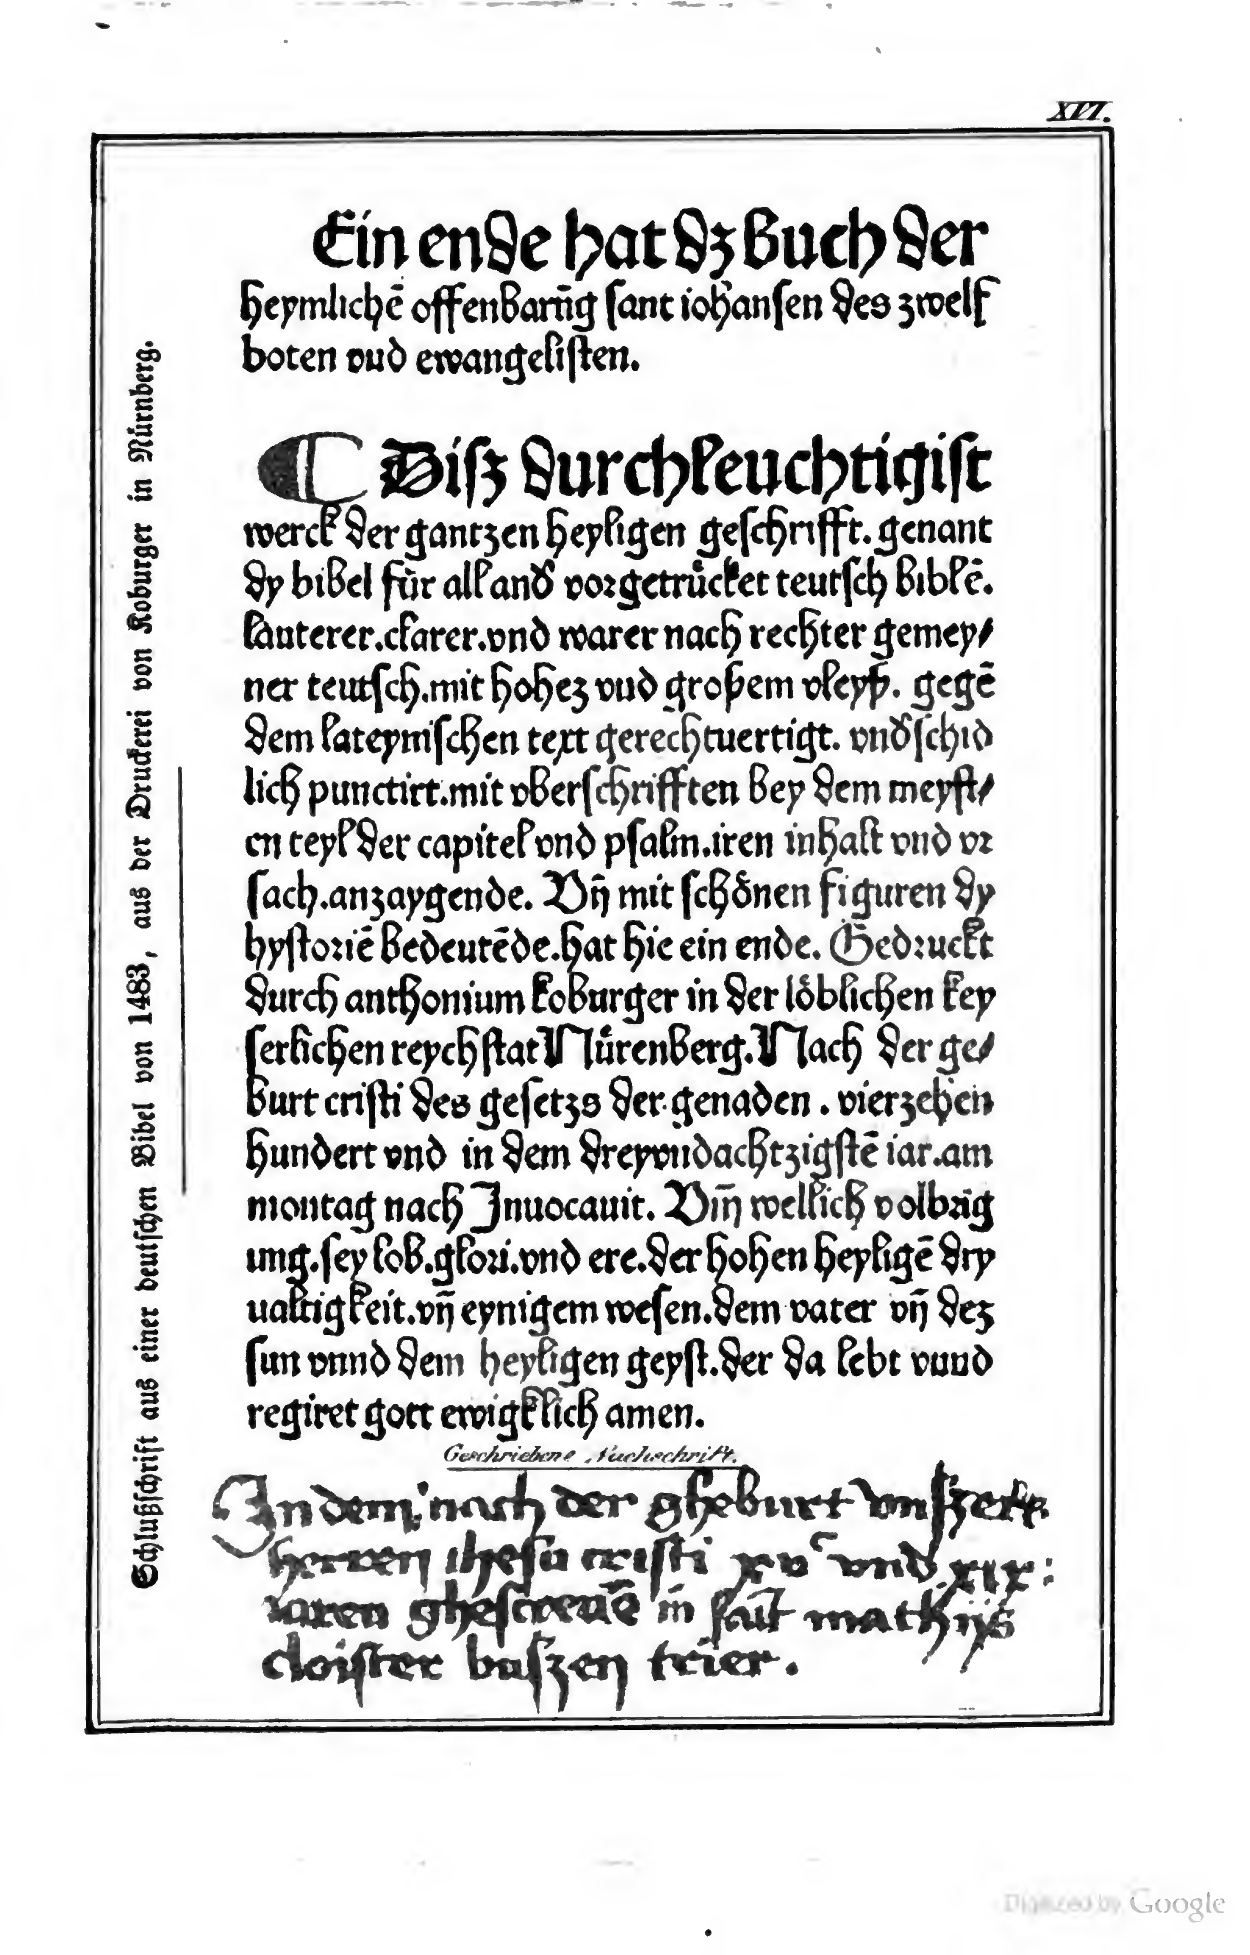 XVI.
Schlußschrift aus einer deutschen Bibel von 1483, aus der Druckerei von Koburger in Nürnberg.
Ein ende hat dz buch der
heymlichē offenbarūg sant iohansen des zwelf
boten vnd ewangelisten.
¶ Disz durchleuchtigist
werck der gantzen heyligen geschrifft. genant
dy bibel für all and̕ vorgetrücket teutsch biblē.
lauterer.clarer.vnd warer nach rechter gemey/
ner teutsch.mit hohez vnd großem vleyß. gegē
dem lateynischen text gerechtuertigt. vnd̕schid
lich punctirt.mit vberschrifften bey dem meyst/
en teyl der capitel vnd psalm.iren inhalt vnd vr
sach.anzaygende. Vn̄ mit schönen figuren dy
hystoriē bedeutēde.hat hie ein ende. Gedruckt
durch anthonium koburger in der löblichen key
serlichen reychstat Nürenberg. Nach der ge/
burt cristi des gesetzs der genaden. vierzehen
hundert vnd in dem dreyvndachtzigstē iar.am
montag nach Inuocauit. Vm̄ wellich volbrīg
ung.sey lob.glori.vnd ere.der hohen heyligē dry
ualtigkeit.vn̄ eynigem wesen.dem vater vn̄ dez
sun vnnd dem heyligen geyst.der da lebt vnnd
regiret gott ewigklich amen.
Geschriebene Nachschrift.
In dem nach der gheburt vnszers
herren ihesu cristi xvᶜ vnd xix:
iaren ghescreuē in sāt mathijs
cloister buszen trier.
Digitized by Google